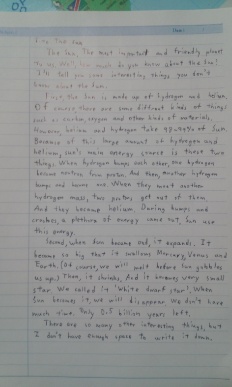 The Sun
The Sun, The most important and friendly planet
to us. Well, how much do you know about the Sun?
I'll tell you some interesting things you don't
know about the Sun.
First, the Sun is made up of hydrogen and helium.
Of course, there are some different kinds of things
such as carbon, oxygen and other kinds of materials.
However, helium and hydrogen take 98~99% of Sun.
Because of this large amount of hydrogen and
helium, sun's main energy source is these two
things. When hydrogen bumps each other, the hydrogen
become neutron from proton. And then, another hydrogen
bumps and become one. When they meet another
hydrogen mass, two protons get out of them.
And they become helium. During bumps and
crashes, a plethora of energy came out. Sun use
this energy.
Second, when Sun become old, it expands. It
became so big that it swallows Mercury, Venus and
Earth. (Of course, we will melt before Sun gobbles
us up.) Then, it shrinks, And it becomes very small
star. We called it 'White dwarf star'. When
Sun becomes it, we will disappear. We don't have
much time. Only 5.5 billion years left.
There are so many other interesting things, but
I don't have enough space to write it down.